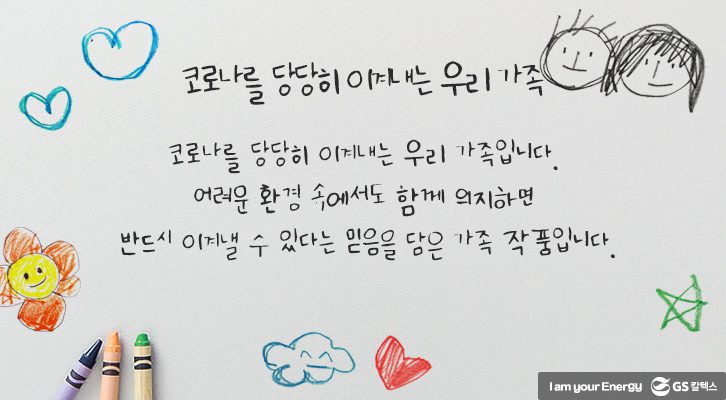 코로나를 당당히 이겨내는 우리 가족
코로나를 당당히 이겨내는 우리 가족입니다.
어려운 환경 속에서도 함께 의지하면
반드시 이겨낼 수 있다는 믿음을 담은 가족 작품입니다.
I am your Energy GS칼텍스